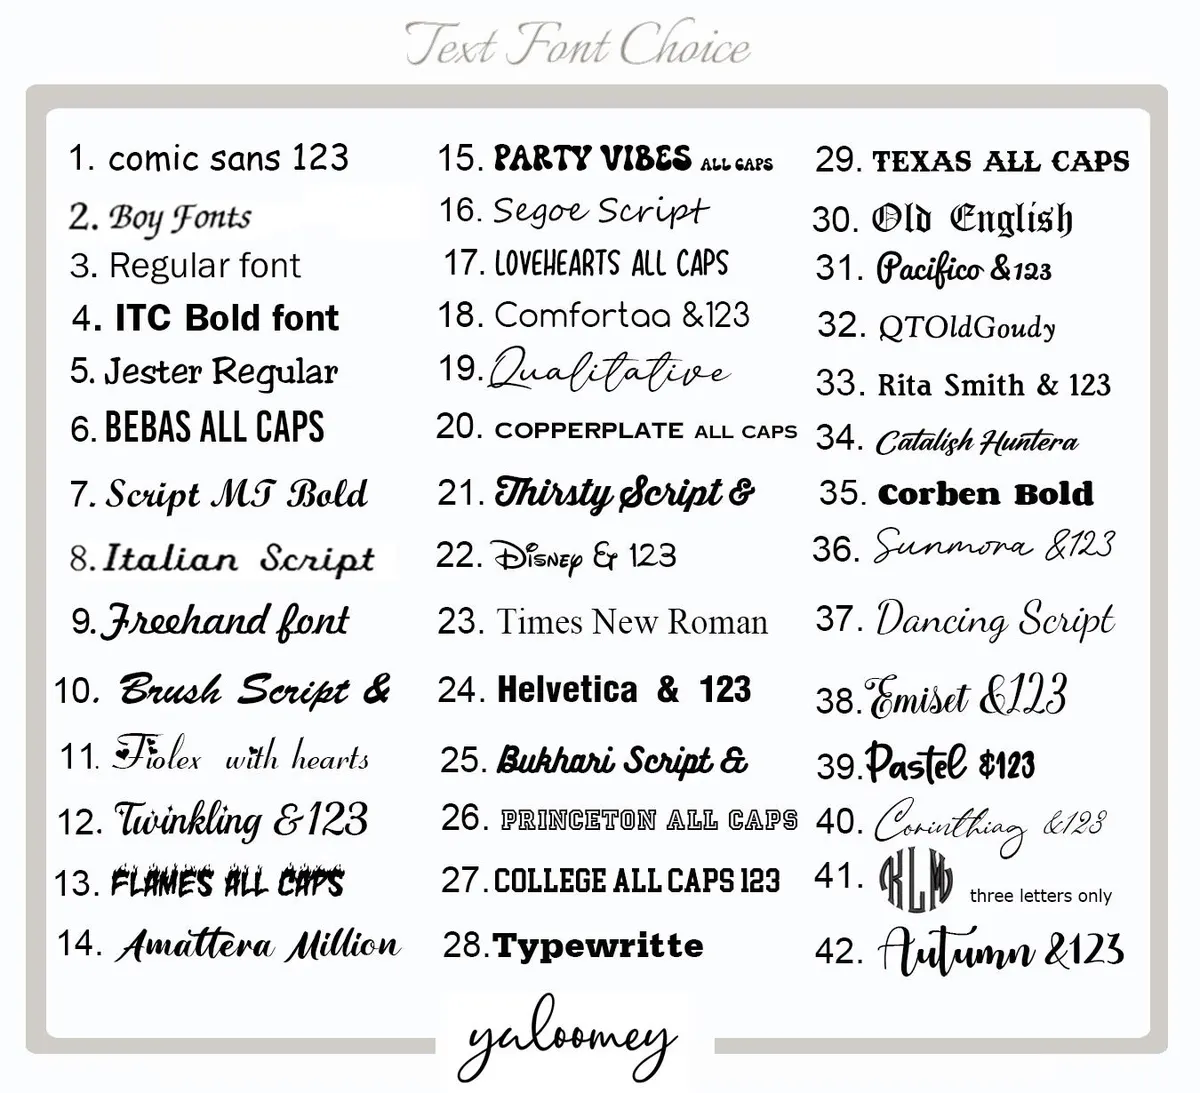 Text Font Choice
1. comic sans 123
2. Boy Fonts
3. Regular font
4. ITC Bold font
5. Jester Regular
6. BEBAS ALL CAPS
7. Script MT Bold
8. Italian Script
9. Freehand font
10. Brush Script &
11. Fiolex with hearts
12. Twinkling &123
13. FLAMES ALL CAPS
14. Amattera Million
15. PARTY VIBES ALL CAPS
16. Segoe Script
17. LOVEHEARTS ALL CAPS
18. Comfortaa &123
19. Qualitative
20. COPPERPLATE ALL CAPS
21. Thirsty Script &
22. Disney & 123
23. Times New Roman
24. Helvetica & 123
25. Bukhari Script &
26. PRINCETON ALL CAPS
27. COLLEGE ALL CAPS 123
28. Typewritte
29. TEXAS ALL CAPS
30. Old English
31. Pacifico &123
32. QTOldGoudy
33. Rita Smith & 123
34. Catalish Huntera
35. Corben Bold
36. Sunmora &123
37. Dancing Script
38. Emiset &123
39. Pastel $123
40. Corinthiag &123
41. KLM three letters only
42. Autumn &123
yaloomey